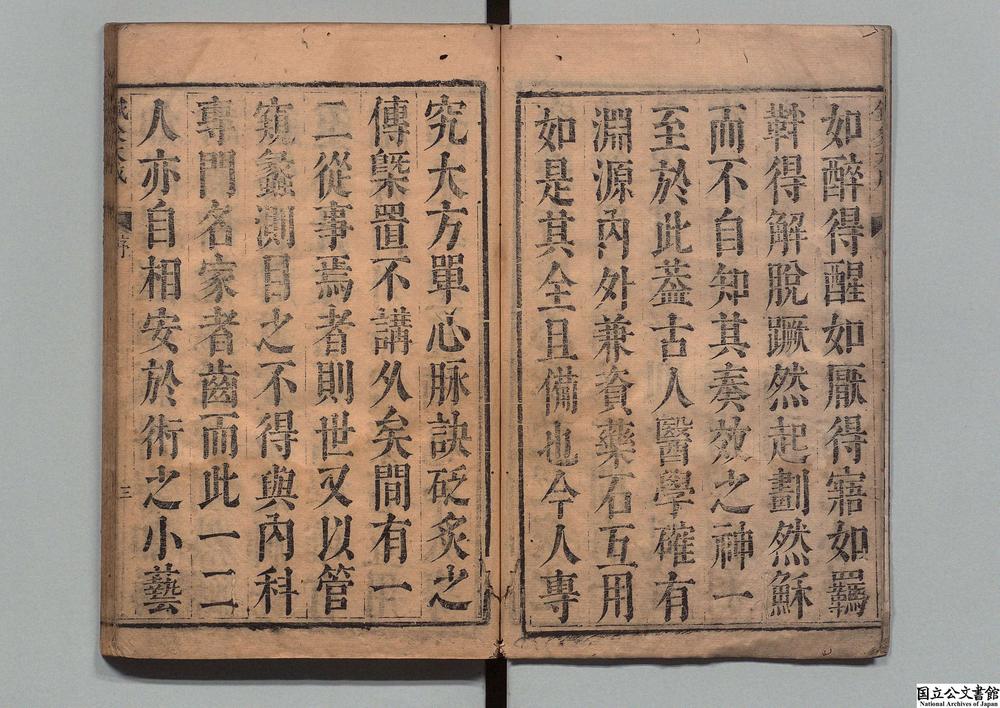 如醉得醒如厭得寤如羈
䩭得解脫蹶然起劃然穌
而不自知其奏效之神一
至於此蓋古人醫學確有
淵源內外兼資藥石互用
如是其全且備也今人專
究大方單心脉訣砭炙之
傳槩置不講久矣間有一
二從事焉者則世又以管
窺蠡測目之不得與內科
專門名家者齒而此一二
人亦自相安於術之小藝
序
三
国立公文書館
National Archives of Japan